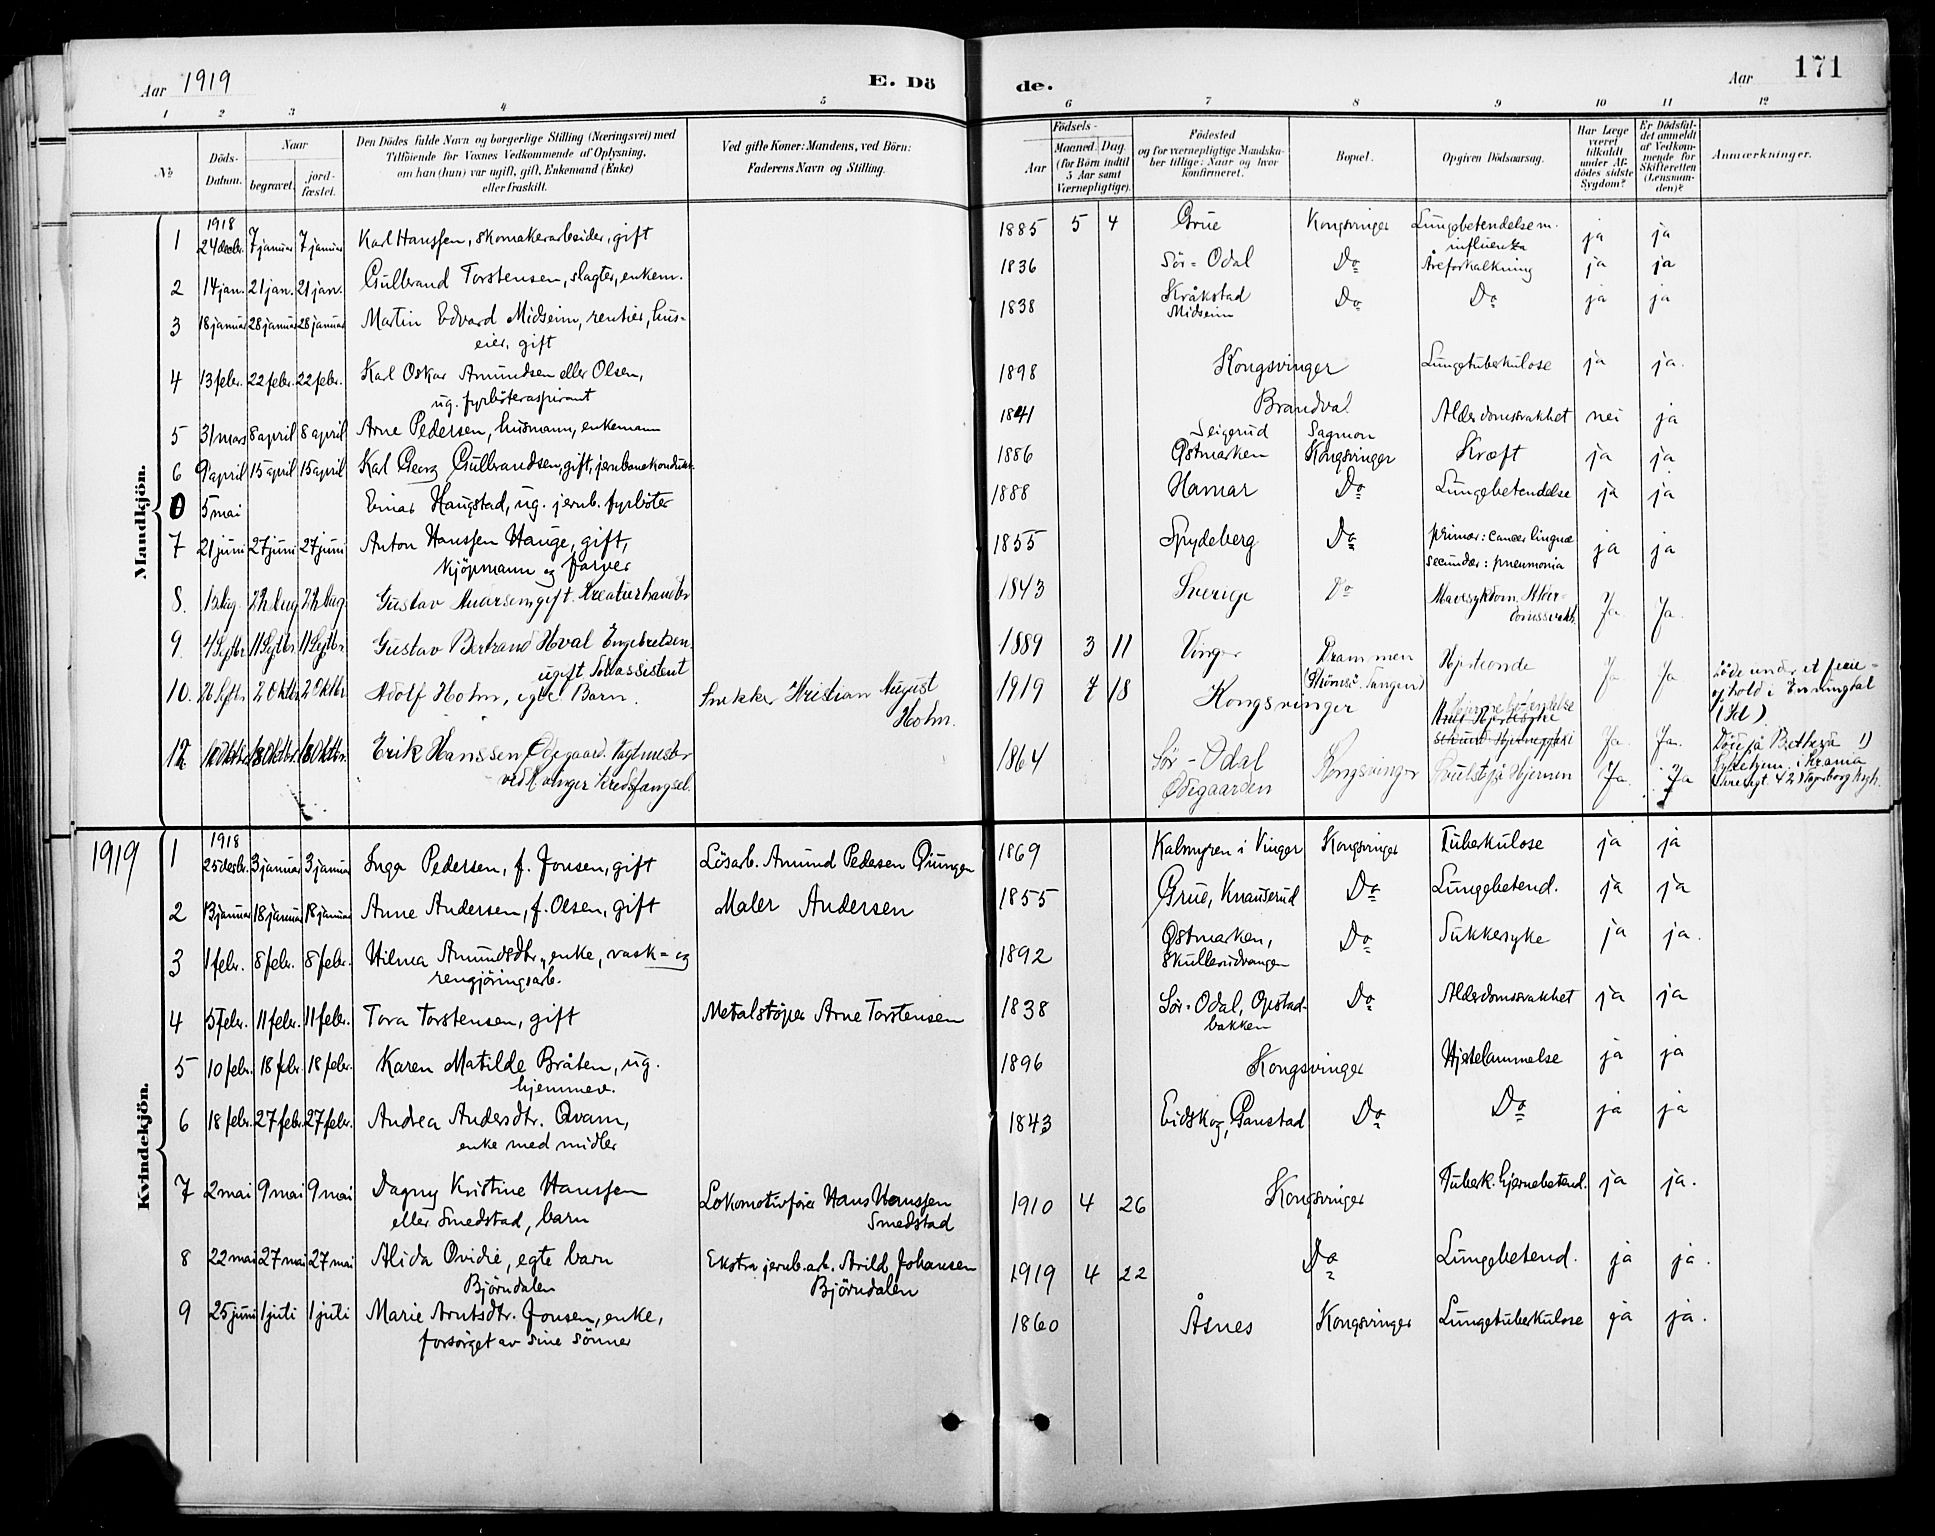 Aar 1919
E. Dö
de.
Aar
171
1 2 3 4 5 6 7 8 9 10 11 12
№
Döds-
Datum.
Naar
begravet.
jord-
fæstet.
Den Dödes fulde Navn og borgerlige Stilling (Næringsvei) med
Tilföiende for Voxnes Vedkommende af Oplysning,
om han (hun) var ugift, gift, Enkemand (Enke)
eller fraskilt.
Ved gifte Koner: Mandens, ved Börn:
Faderens Navn og Stilling.
Födsels-
Aar
Maaned. Dag.
(for Börn indtil
5 Aar samt
Værnepligtige).
Födested
og for værnepligtige Mandska-
ber tillige: Naar og hvor
konfirmeret.
Bopæl.
Opgiven Dödsaarsag.
Har Læge
været
tilkaldt
under Af-
dödes sidste
Sygdom?
Er Dödsfal-
det anmeldt
af Vedkom-
mende for
Skifteretten
(Lensman-
den)?
Anmærkninger.
Mandkjön.
1918
1 24 decbr. 7 januar 7 januar Karl Hanssen, skomakerarbeider, gift 1885 5 4 Grue Kongsvinger Lungebetendelse m. ja ja
influenza
2 14 jan. 21 jan. 21 jan. Gulbrand Torstensen, slagter, enkem. 1836 Sör-Odal Do Åreforkalkning ja ja
3 18 januar 28 januar 28 januar Martin Edvard Midseim, rentier, hus- 1838 Kråkstad Do Do ja ja
eier, gift Midseim
4 13 febr. 22 febr. 22 febr. Karl Oskar Amundsen eller Olsen, 1898 Kongsvinger Lungetuberkulose ja ja.
ug. fyrböteraspirant
5 31 mars 8 april 8 april Arne Pedersen, husmann, enkemann 1841 Brandval Alderdomssvakhet nei ja
Seigerud Sagmon
6 9 april 15 april 15 april Karl Georg Gulbrandsen, gift, jernbanekonduktör 1886 Østmarken Kongsvinger Kræft ja ja
0 5 mai Einar Haugstad, ug. jernb. fyrböter 1888 Hamar Do Lungebetendelse ja ja
7 21 juni 27 juni 27 juni Anton Hanssen Hauge, gift, 1855 Spydeberg Do primær: cancer linguæ ja ja
kjöpmann og farver secundær: pneumonia
8. 22 Aug 22 Aug. Gustav gift. Kreaturhandler 1843 Sverige Do Mavesykdom. Ja. Ja.
9. 4 Septbr. 11 Septbr. 11 Septbr. Gustav Bertrand Hval Engebretsen 1889 3 11 Vinger Drammen Ja. Ja. Döde under et ferie-
ugift Toldassistent ophold i Enningdal
10. 26 Septbr. 2 Oktbr. 2 Oktbr. Adolf Holm, egte Barn. Snekker Kristian August 1919 7 18 Kongsvinger Ja. Ja.
Holm.
12 18 Oktbr. 18 Oktbr. Erik Hanssen Ödegaard. Vagtmester 1864 Sör-Odal Kongsvinger Ja. Ja
ved Vinger Kredsfængsel. Ödegaarden
1919
Kvindekjön.
1918
1 25 decbr. 3 januar 3 januar Inga Pedersen, f. Jonsen, gift Lösarb. Amund Pedersen Djungen 1869 Kalmyren i Vinger Kongsvinger Tuberkulose ja ja
2 13 januar 18 januar 18 januar Anne Andersen, f. Olsen, gift Maler Andersen 1855 Grue, Knauserud Do Lungebetend. ja ja
3 1 febr. 8 febr. 8 febr. Hilma Amundsdtr., enke, vask- og 1892 Østmarken, Do Sukkersyke ja ja.
rengjöringsarb. Skullerudvangen
4 5 febr. 11 febr. 11 febr. Tora Torstensen, gift Metalstøper Arne Torstensen 1838 Sör-Odal, Opstad- Do Alderdomssvakhet ja ja
bakken
5 10 febr. 18 febr. 18 febr. Karen Matilde Bråten, ug. 1896 Kongsvinger Hjertelammelse ja ja
hjemmev.
6 18 febr. 27 febr. 27 febr. Andrea Andersdtr. Qvam, 1843 Eidskog, Panstad Do Do ja ja
enke med midler
7 2 mai 9 mai 9 mai Dagny Kristine Hanssen Lokomotivförer Hans Hanssen 1910 4 26 Kongsvinger Tuberk. hjernebetend. ja ja.
eller Smedstad, barn Smedstad
8 22 mai 27 mai 27 mai Alida Ovidie, egte barn Ekstra jernb.arb. Arild Johansen 1919 4 22 Do Lungebetend. ja ja.
Björndalen Björndalen
9 25 juni 1 juli 1 juli Marie Arntsdtr. Jonsen, enke, 1860 Åsnes Kongsvinger Lungetuberkulose ja ja.
forsörget av sine sönner